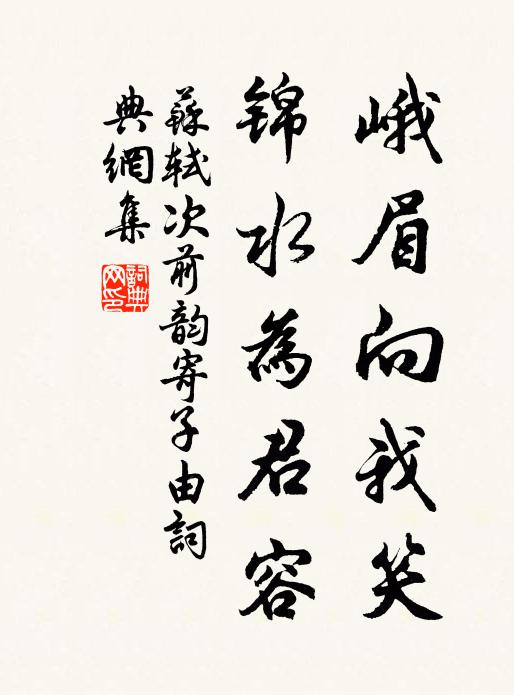 峨眉向我笑
錦水為君容
蘇軾次前韵寄子由詞
典網集
詞典
网印